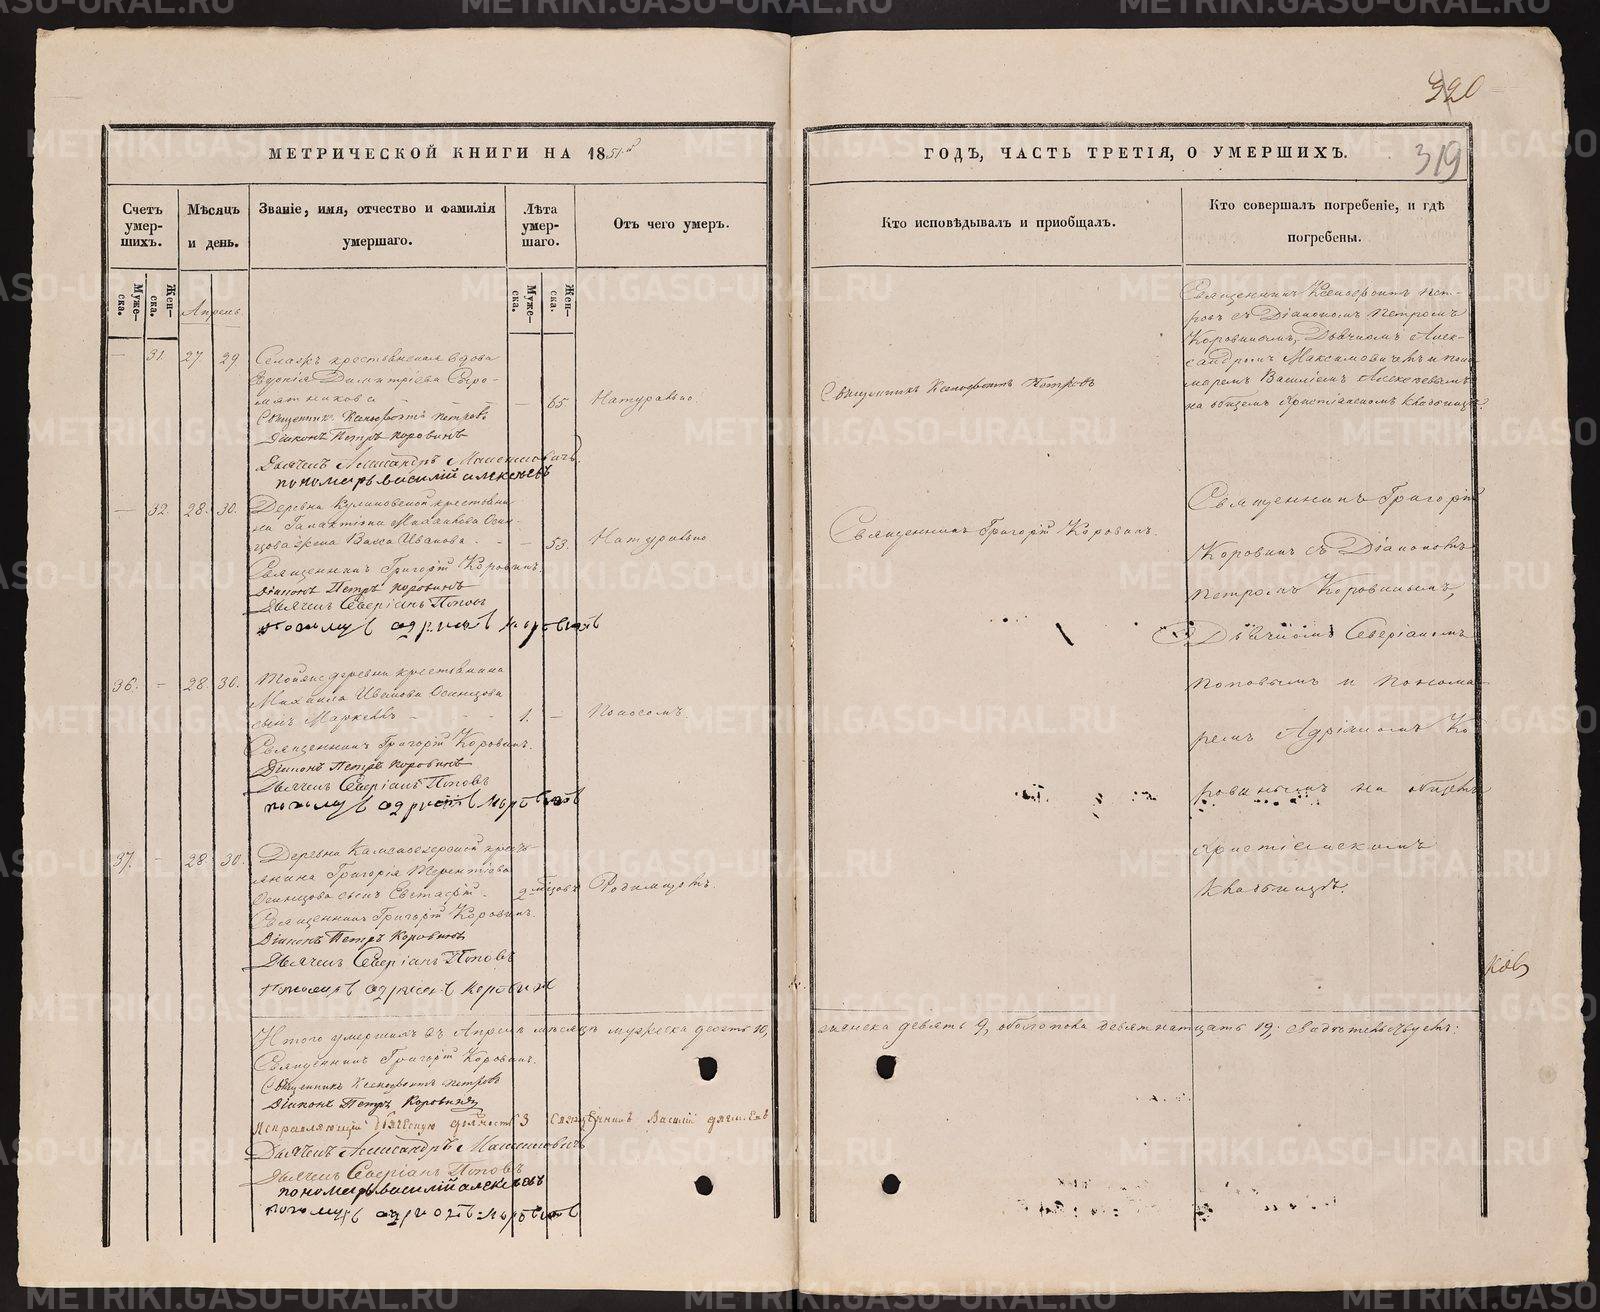 320
319
МЕТРИЧЕСКОЙ КНИГИ НА 1851й
ГОДЪ, ЧАСТЬ ТРЕТІЯ, О УМЕРШИХЪ.
Счетъ умер-шихъ.
Мѣсяцъ и день.
Званіе, имя, отчество и фамилія умершаго.
Лѣта умер-шаго.
Отъ чего умеръ.
Кто исповѣдывалъ и приобщалъ.
Кто совершалъ погребеніе, и гдѣ погребены.
Муже-ска.
Жен-ска.
Апрель
Муже-ска.
Жен-ска.
— 31. 27 29
крестьянская вдова
Евдокія Димитріева Сыро-
мятникова — 65. Натурально
Священникъ Ксенофонтъ Петровъ
Діаконъ Петръ Коровинъ
Дьячекъ Александръ Максимовичъ
пономарь василій алексѣевъ
Священникъ Ксенофонтъ Петровъ
Священникъ Ксенофонтъ Пет-
ровъ съ Діакономъ Петромъ
Коровинымъ, Дьячкомъ Алек-
сандромъ Максимовичемъ и поно-
маремъ Василіемъ Алексѣевымъ
на общемъ христіанскомъ кладбищѣ.
— 32. 28. 30. Деревни крестьяни-
на Галактіона Осин-
цова жена Васса Иванова. — 53. Натурально
Священникъ Григорій Коровинъ.
Діаконъ Петръ Коровинъ
Дьячекъ Северіанъ Поповъ
Священникъ Григорій Коровинъ.
36. — 28. 30. Тойже деревни крестьянина
Михаила Иванова Осинцова
сынъ Маркеллъ — 1. — Поносомъ.
Священникъ Григорій Коровинъ.
Діаконъ Петръ Коровинъ
Дьячекъ Северіанъ Поповъ
37. — 28. 30. Деревни Камсаозерской кресть-
янина Григорія Терентіева
Осинцова сынъ Евстафій 2 мѣсяцовъ Родимцемъ.
Священникъ Григорій Коровинъ.
Діаконъ Петръ Коровинъ
Дьячекъ Северіанъ Поповъ
Священникъ Григорій
Коровинъ съ Діакономъ
Петромъ Коровинымъ,
Дьячкомъ Северіаномъ
Поповымъ и Понома-
ремъ Адріаномъ Ко-
ровинымъ на общемъ
христіанскомъ
кладбищѣ.
Итого умершихъ въ Апрелѣ мѣсяцѣ мужеска десять 10,
женска девять 9, обоего пола девятнатцать 19; свидѣтельствуемъ:
Священникъ Григорій Коровинъ.
Священникъ Ксенофонтъ Петровъ
Діаконъ Петръ Коровинъ
Исправляющій должность Священникъ Василій
Дьячекъ Александръ Максимовичъ
Дьячекъ Северіанъ Поповъ
пономарь василій алексѣевъ
METRIKI.GASO-URAL.RU